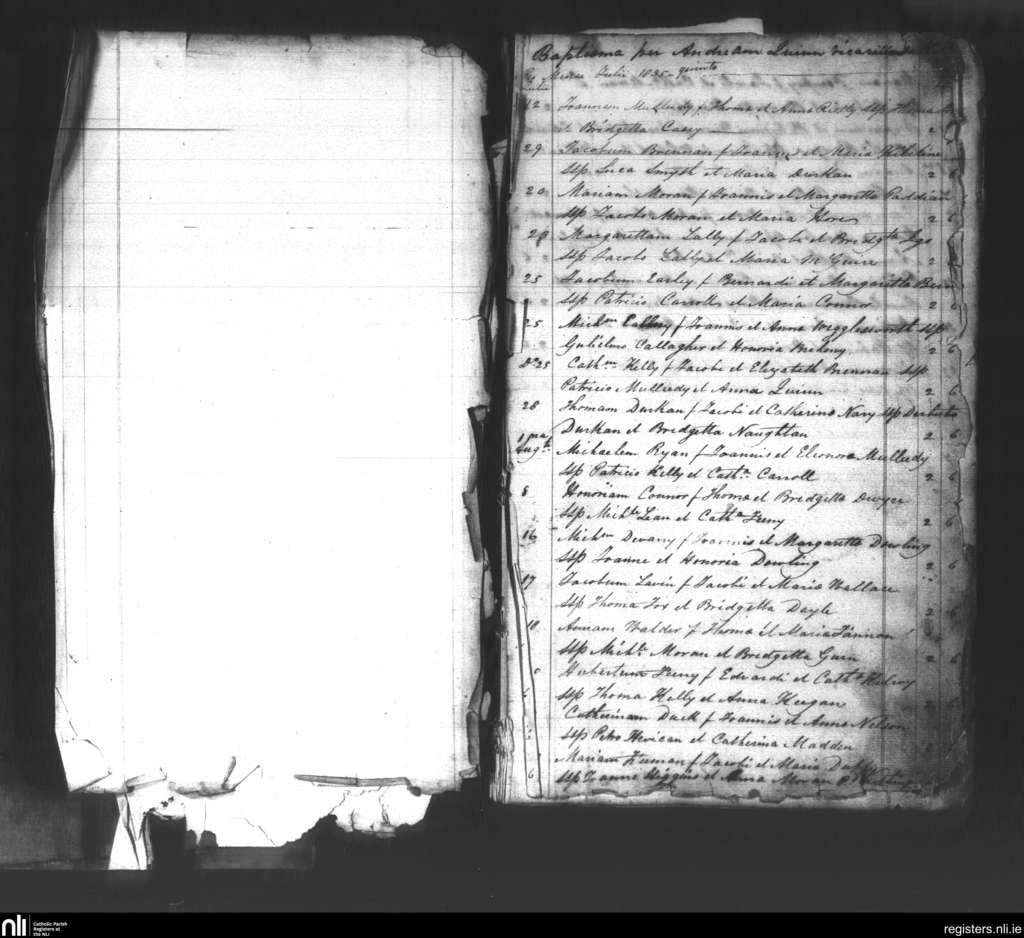 Baptisma per Andream Quinn
Mense Julii 1835 quinto
12 Joannem Mulledy f Thoma et Anna Reilly Ssp Thoma
et Bridgetta Casey 2 6
29 Jacobum Brennan f Joannis et Maria
Ssp Luca Smyth et Maria Durkan 2 6
20 Mariam Moran f Joannis et Margaretta
Ssp Jacobo Moran et Maria 2 6
20 Margarettam Lally f Jacobi et
Ssp Jacobo Lally et Maria McGuire 2
25 Jacobum Earley f Bernardi et Margaretta
Ssp Patricio Carroll et Maria Connor 2 6
25 Michm f Joannis et Anna Wigglesworth Ssp
Gulielmo Callagher et Honoria 2 6
Do 25 Cathm Kelly f Jacobi et Elizabeth Brennan Ssp
Patricio Mulledy et Anna Quinn 2 6
28 Thomam Durkan f Jacobi et Catherina Nary Ssp
Durkan et Bridgetta Naughtan 2 6
1ma Augti Michaelem Ryan f Joannis et Elenora Mulledy
Ssp Patricio Kelly et Catha Carroll 2 6
8 Honoriam Connor f Thoma et Bridgetta Dwyer
Ssp Michle Lean et Catha Feeny 2 6
16 Michm Devany f Joannis et Margaretta Dowling
Ssp Joanne et Honoria Dowling 2 6
17 Jacobum Lavin f Jacobi et Maria Wallace
Ssp Thoma Fox et Bridgetta Doyle 2 6
Annam Walder f Thoma et Maria Fannon
Ssp Michle Moran et Bridgetta 2 6
Hubertum Feeny f Edvardi et Catha
Ssp Thoma Kelly et Anna Keegan 2 6
Catherinam f Joannis et Anna Nelson
Ssp Petro et Catherina Madden
Mariam f Jacobi et Maria
Ssp Joanne Higgins et Anna Moran
nli
Catholic Parish
Registers at
the NLI
registers.nli.ie